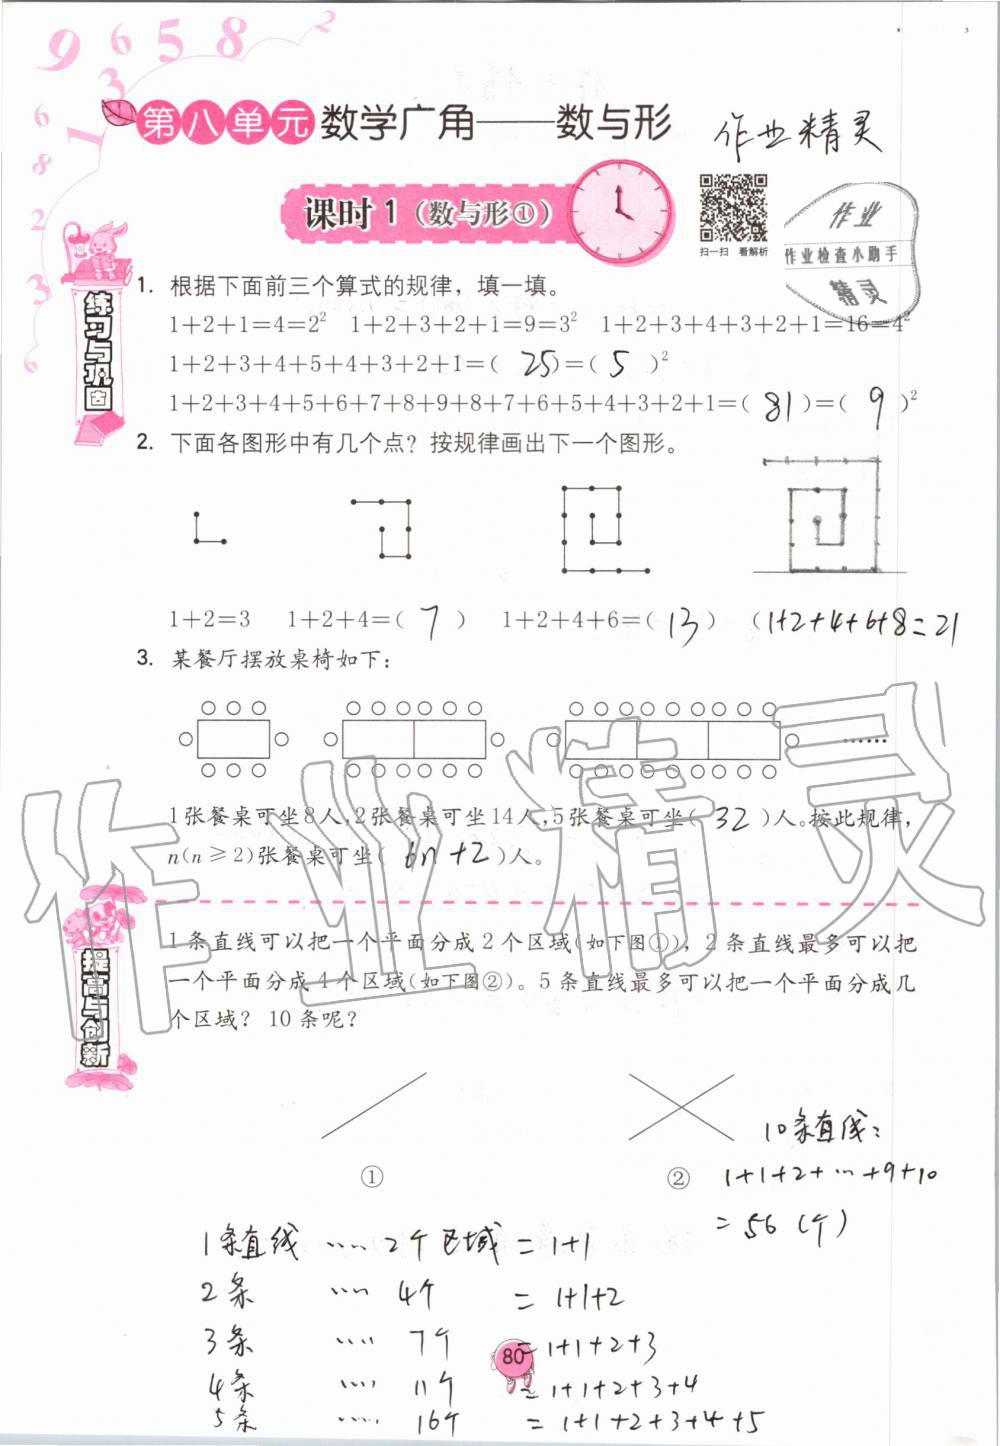 9 6 5 8 2
3
1
6
8
2
3
3
6
第八单元 数学广角——数与形
作业精灵
课时1（数与形①）
扫一扫 看解析
作业
作业检查小助手
精灵
练习与巩固
1. 根据下面前三个算式的规律，填一填。
1+2+1=4=2² 1+2+3+2+1=9=3² 1+2+3+4+3+2+1=16=4²
1+2+3+4+5+4+3+2+1=( 25 )=( 5 )²
1+2+3+4+5+6+7+8+9+8+7+6+5+4+3+2+1=( 81 )=( 9 )²
2. 下面各图形中有几个点？按规律画出下一个图形。
1+2=3 1+2+4=( 7 ) 1+2+4+6=( 13 ) (1+2+4+6+8=21
3. 某餐厅摆放桌椅如下：
……
1张餐桌可坐8人，2张餐桌可坐14人，5张餐桌可坐( 32 )人。按此规律，
n(n≥2)张餐桌可坐( 6n+2 )人。
作业精灵
提高与创新
1条直线可以把一个平面分成2个区域(如下图①)，2条直线最多可以把
一个平面分成4个区域(如下图②)。5条直线最多可以把一个平面分成几
个区域？10条呢？
① ②
10条直线：
1+1+2+…+9+10
=56（个）
1条直线 …… 2个区域 =1+1
2条 …… 4个 =1+1+2
3条 …… 7个 =1+1+2+3
4条 …… 11个 =1+1+2+3+4
5条 …… 16个 =1+1+2+3+4+5
80